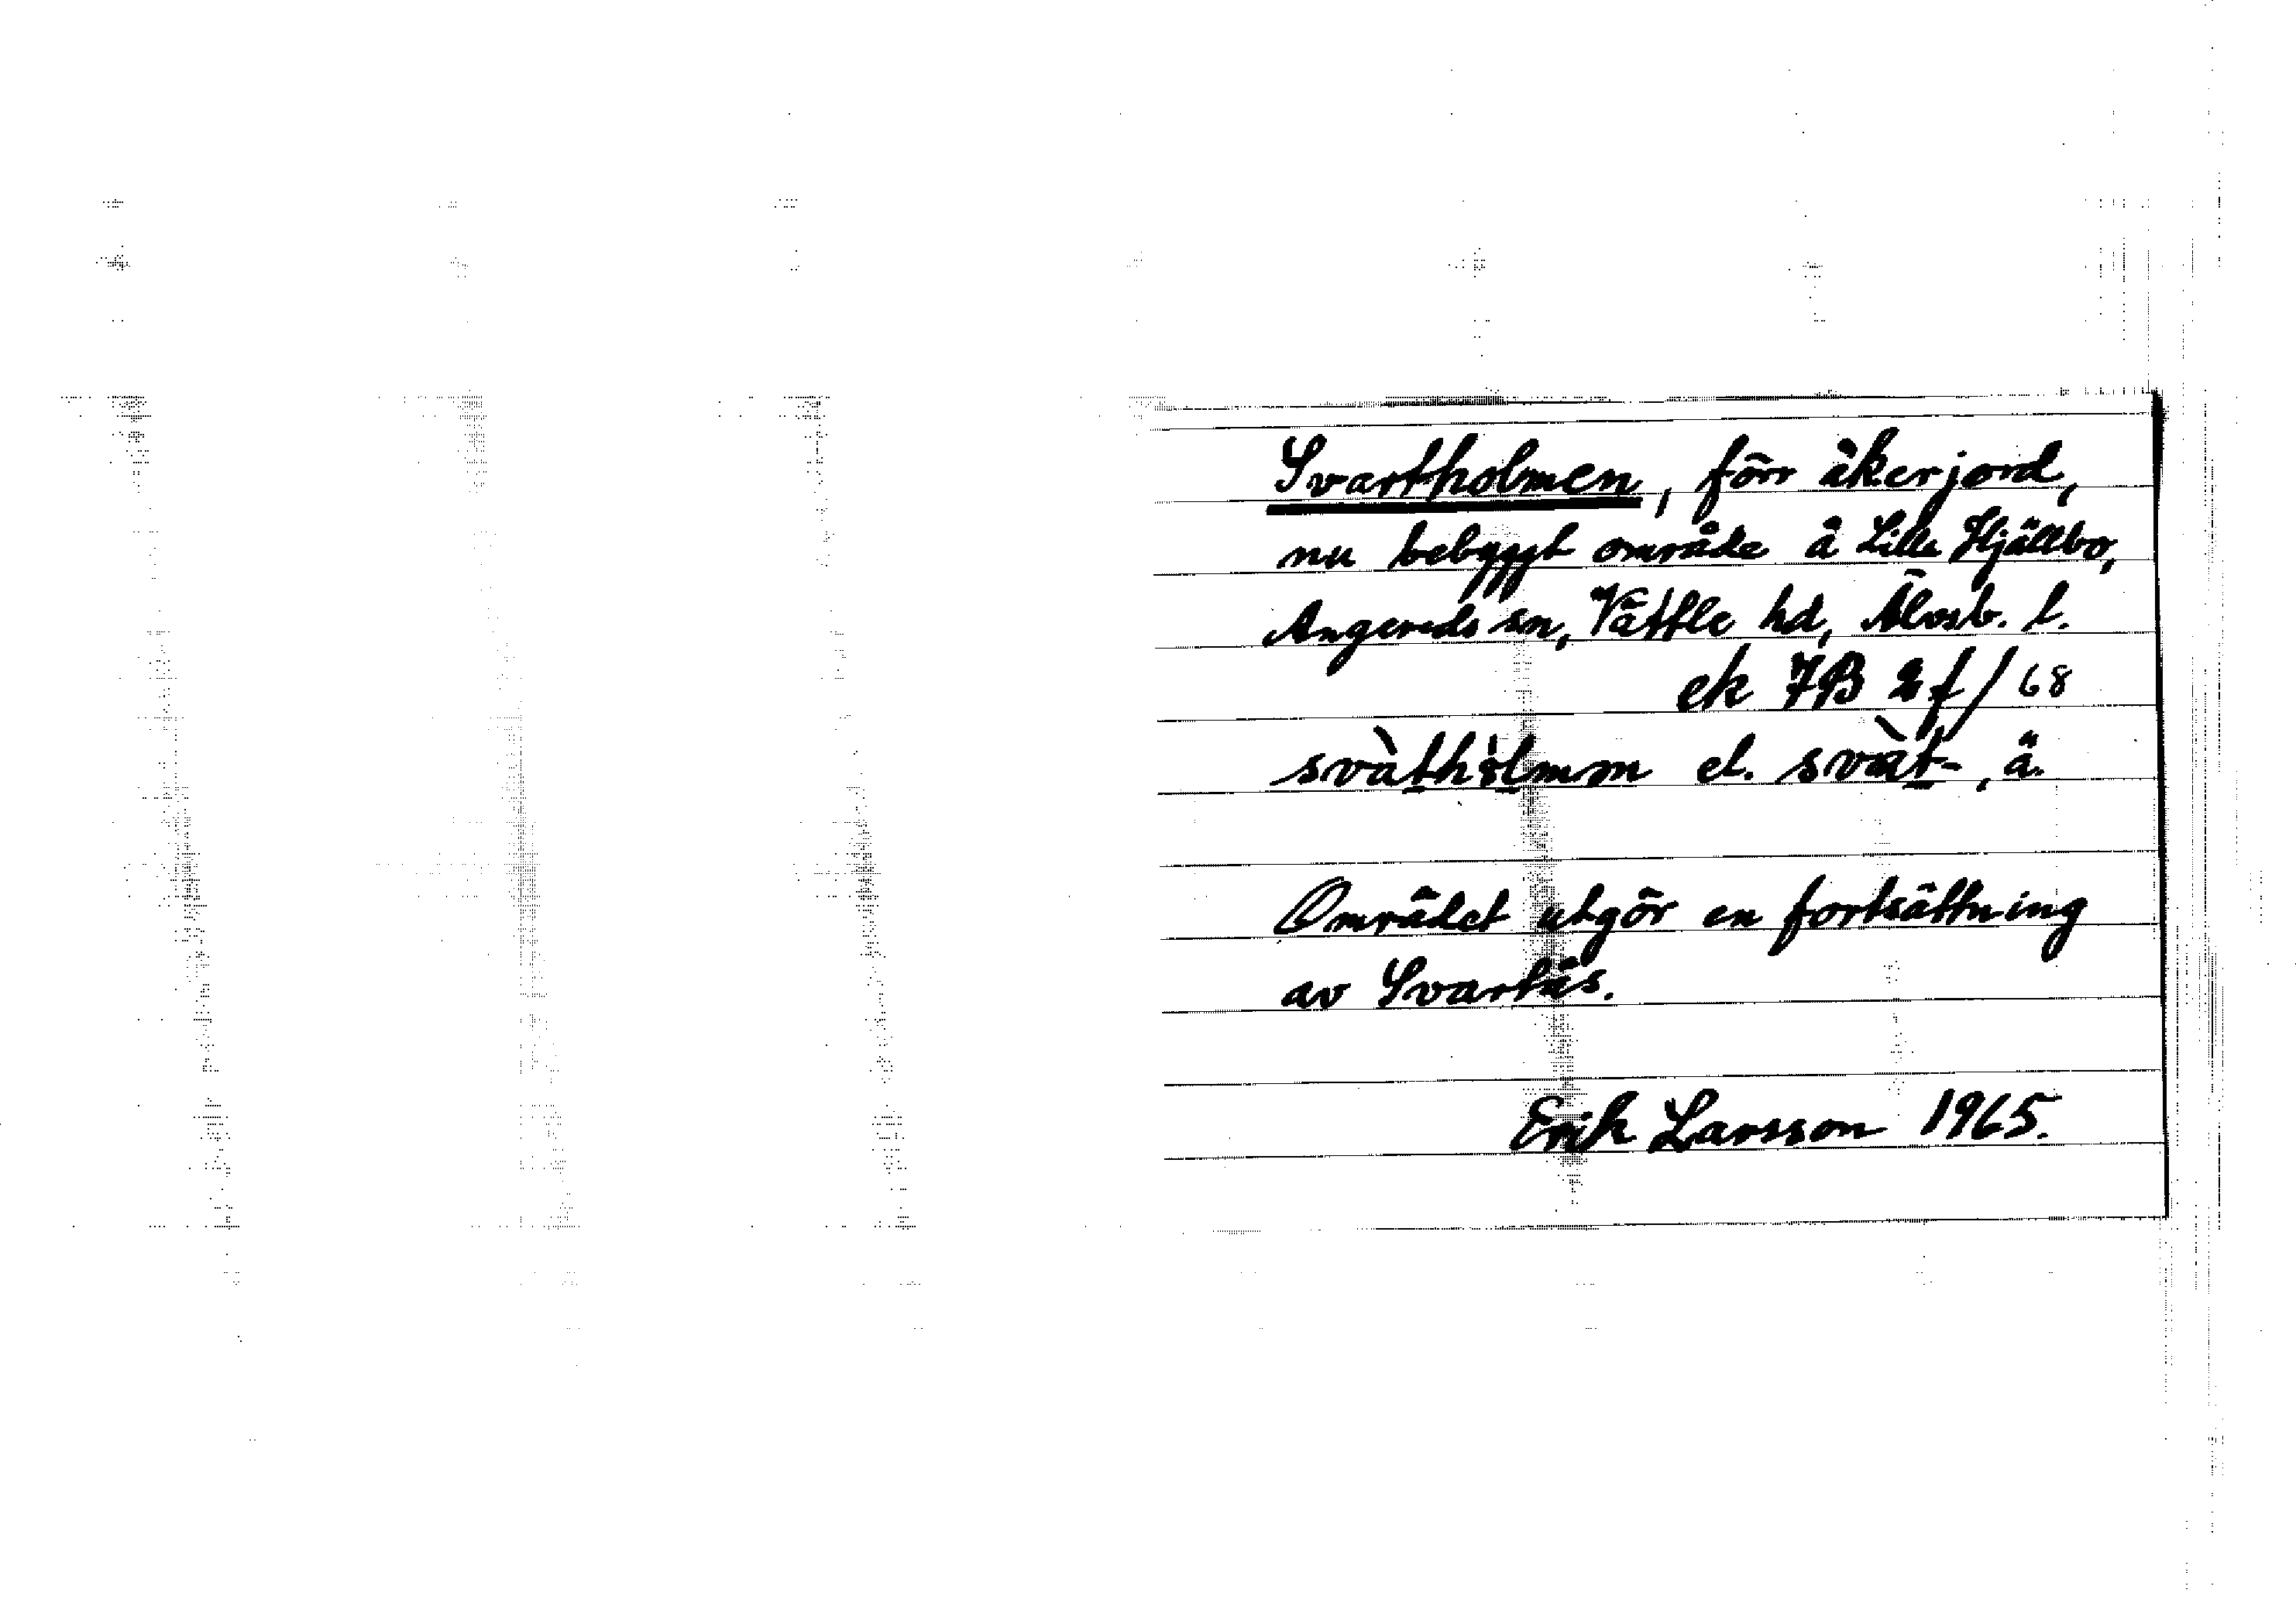 Svartholmen, förr åkerjord,
nu bebyggt område å Lilla Hjällbo,
Angereds sn, Vättle hd, Älvsb. l.
ek 7B 2f/68
svàthòlmən el. svàt-, å.
Området utgör en fortsättning
av Svartås.
Erik Larsson 1965.